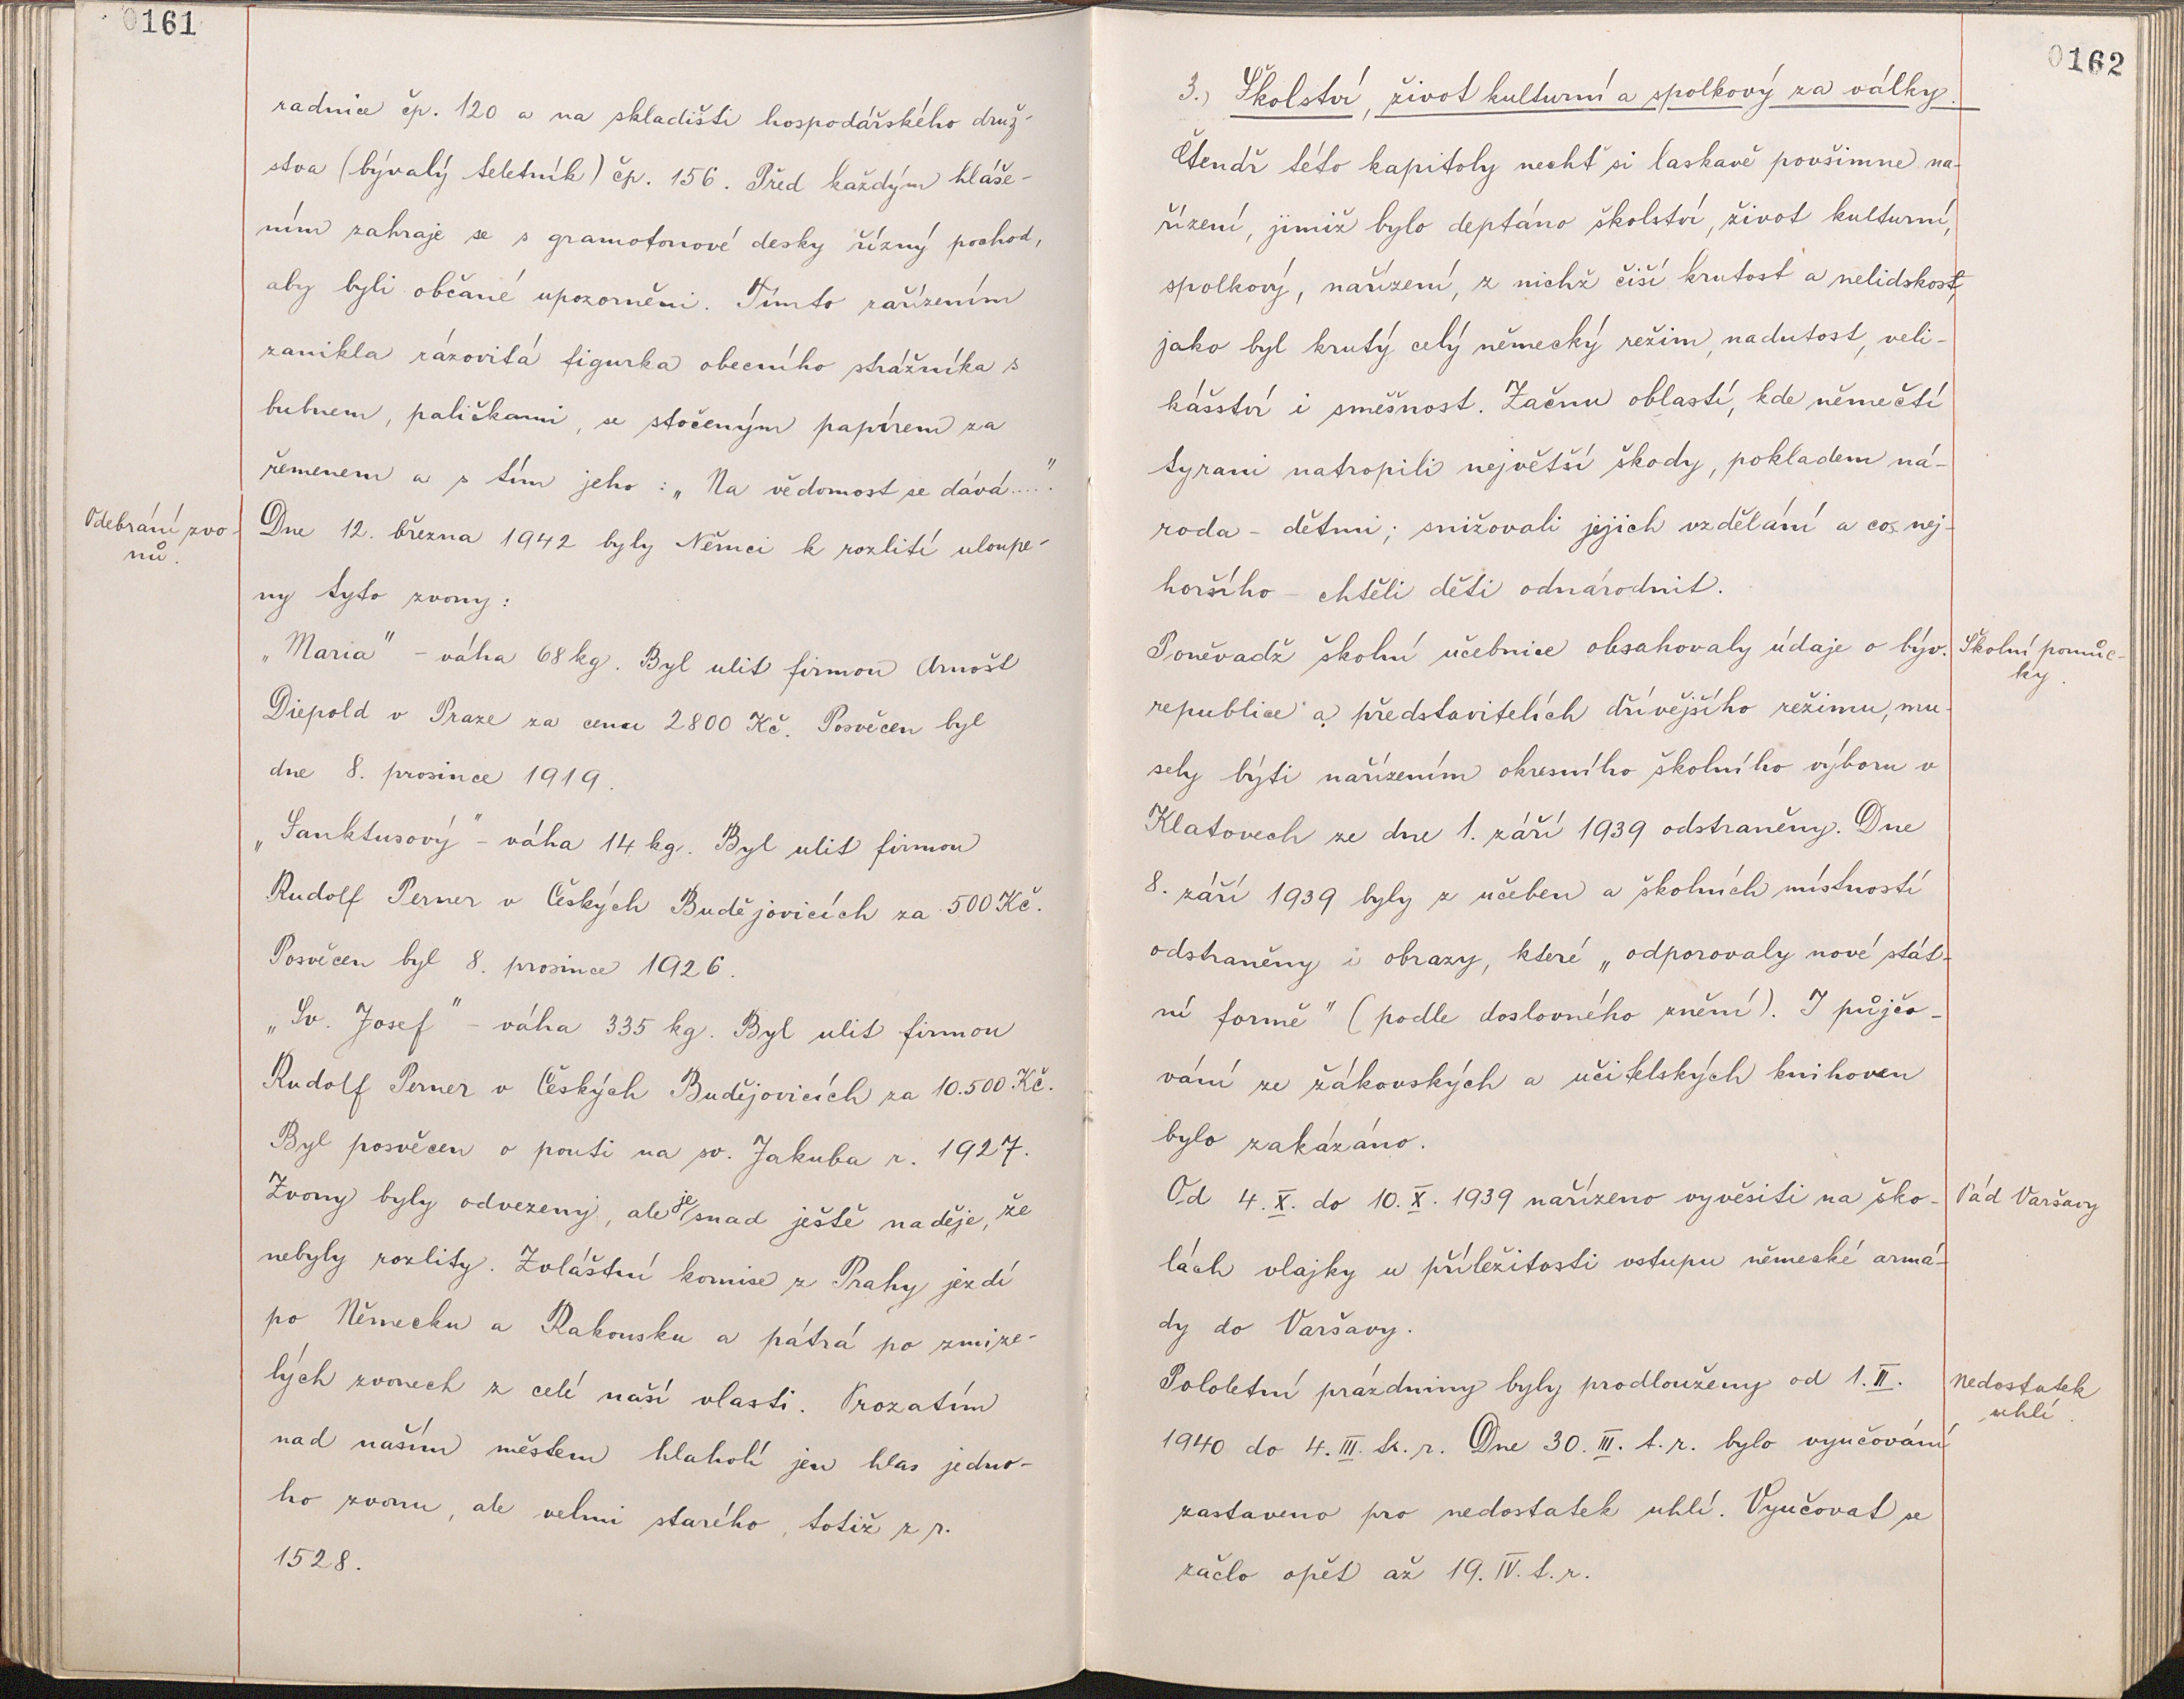 0161
radnice čp. 120 a na skladišti hospodářského druž-
stva (bývalý teletník) čp. 156. Před každým hláše-
ním zahraje se s gramofonové desky řízný pochod,
aby byli občané upozorněni. Tímto zařízením
zanikla rázovitá figurka obecního strážníka s
bubnem, paličkami, se stočeným papírem za
řemenem a s tím jeho: „Na vědomost se dává....."
Odebrání zvo-
nů.
Dne 12. března 1942 byly Němci k rozlití uloupe-
ny tyto zvony:
„Maria" - váha 68 kg. Byl ulit firmou Arnošt
Diepold v Praze za cenu 2800 Kč. Posvěcen byl
dne 8. prosince 1919.
„Sanktusový" - váha 14 kg. Byl ulit firmou
Rudolf Perner v Českých Budějovicích za 500 Kč.
Posvěcen byl 8. prosince 1926.
„Sv. Josef" - váha 335 kg. Byl ulit firmou
Rudolf Perner v Českých Budějovicích za 10.500 Kč.
Byl posvěcen o pouti na sv. Jakuba r. 1927.
Zvony byly odvezeny, ale je snad ještě naděje, že
nebyly rozlity. Zvláštní komise z Prahy jezdí
po Německu a Rakousku a pátrá po zmize-
lých zvonech z celé naší vlasti. Prozatím
nad naším městem hlaholí jen hlas jedno-
ho zvonu, ale velmi starého, totiž z r.
1528.
0162
3.) Školství, život kulturní a spolkový za války.
Čtenář této kapitoly nechť si laskavě povšimne na-
řízení, jimiž bylo deptáno školství, život kulturní,
spolkový, nařízení, z nichž čiší krutost a nelidskost,
jako byl krutý celý německý režim, nadutost, veli-
kášství i směšnost. Začnu oblastí, kde němečtí
tyrani natropili největší škody, pokladem ná-
roda - dětmi; snižovali jejich vzdělání a co nej-
horšího - chtěli děti odnárodnit.
Poněvadž školní učebnice obsahovaly údaje o býv.
Školní pomůc-
ky.
republice a představitelích dřívějšího režimu, mu-
sely býti nařízením okresního školního výboru v
Klatovech ze dne 1. září 1939 odstraněny. Dne
8. září 1939 byly z učeben a školních místností
odstraněny i obrazy, které „odporovaly nové stát-
ní formě" (podle doslovného znění). I půjčo-
vání ze žákovských a učitelských knihoven
bylo zakázáno.
Od 4. X. do 10. X. 1939 nařízeno vyvěsiti na ško-
Pád Varšavy
lách vlajky u příležitosti vstupu německé armá-
dy do Varšavy.
Pololetní prázdniny byly prodlouženy od 1. II.
Nedostatek
uhlí.
1940 do 4. III. t. r. Dne 30. III. t. r. bylo vyučování
zastaveno pro nedostatek uhlí. Vyučovat se
začlo opět až 19. IV. t. r.